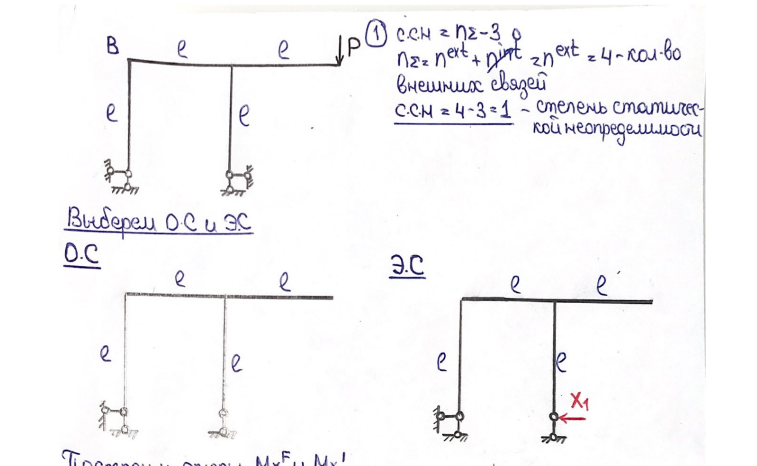 B ℓ ℓ P
① С.С.Н = nΣ-3
nΣ = n^ext + n^int = n^ext = 4 - кол-во
0
внешних связей
С.С.Н = 4-3=1 - степень статичес-
кой неопределимости
ℓ ℓ
Выберем О.С и Э.С
О.С
Э.С
ℓ ℓ
ℓ ℓ
ℓ ℓ
ℓ ℓ
X₁